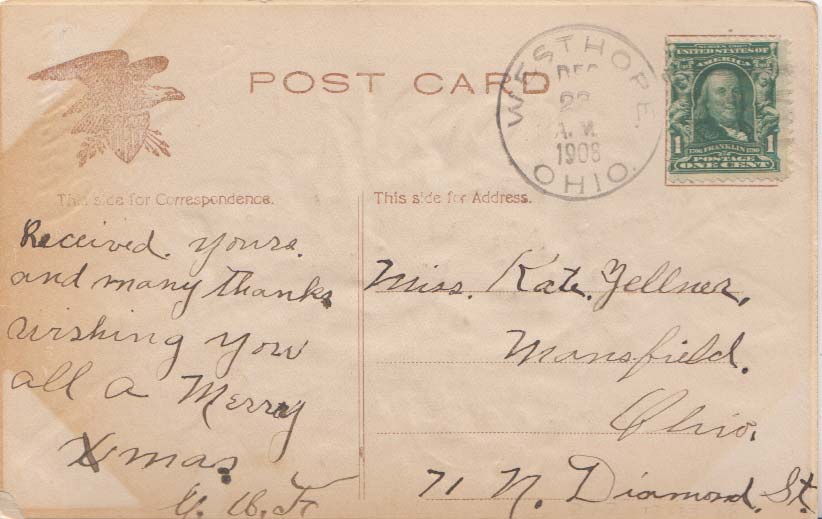 POST CARD
WESTHOPE.
DEC
A.M.
1908
OHIO.
SERIES 1902
UNITED STATES OF
AMERICA
1 1
FRANKLIN
POSTAGE
ONE CENT
This side for Correspondence.
Received. yours.
and many thanks.
wishing you
all a Merry
Xmas.
This side for Address.
Miss. Kate. Zellner,
Mansfield.
Ohio.
71 N. Diamond. St.